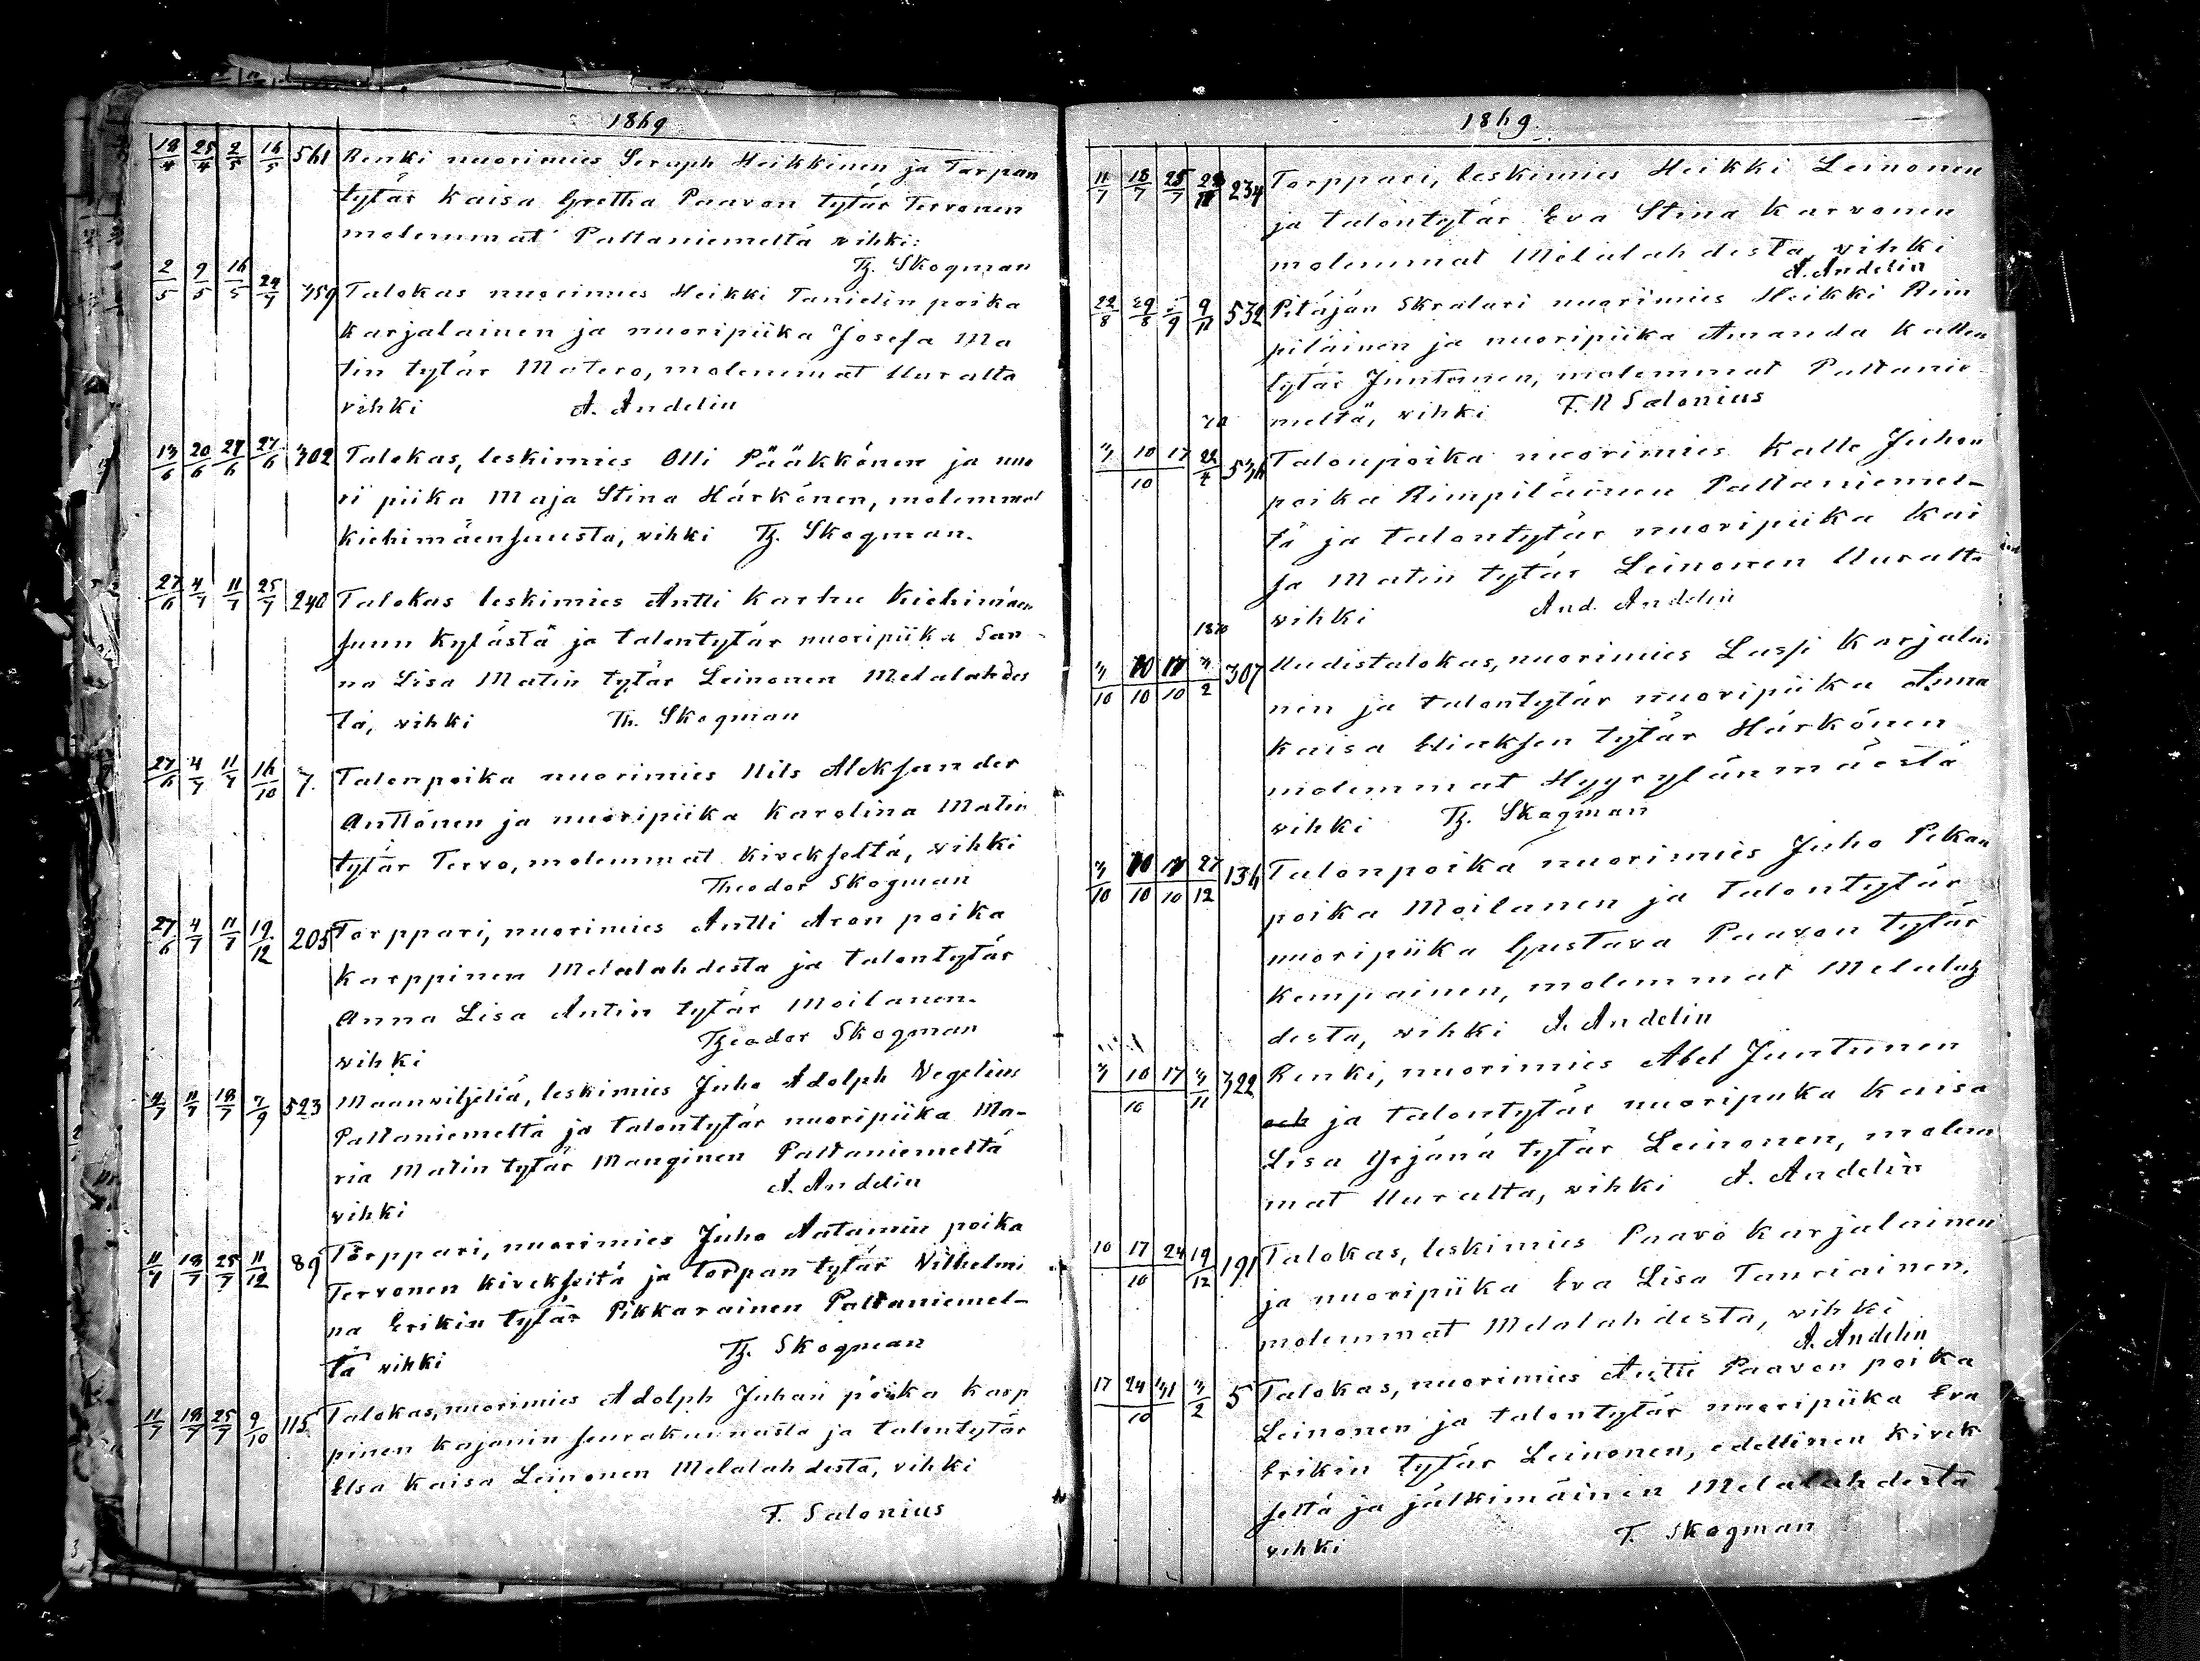 1869
18/4 25/4 2/5 16/5 561 Renki nuorimies Seraph Heikkinen ja Torpan
tytär Kaisa Gretha Paavon tytär Tervonen
molemmat Paltaniemeltä vihki:
Th. Skogman
2/5 9/5 16/5 359 Talokas nuorimies Heikki Tanielin poika
Karjalainen ja nuoripiika Josefa Ma
tin tytär Matero, molemmat Uuralta
vihki A. Andelin
13/6 20/6 27/6 27/6 302 Talokas, leskimies Olli Pääkkönen ja nuo
ri piika Maja Stina Härkönen, molemmat
Kiehimäensuusta, vihki Th. Skogman.
27/6 4/7 11/7 25/7 240 Talokas leskimies Antti Karhu Kiehimäen
suun Kylästä ja talontytär nuoripiika San
na Lisa Matin tytär Leinonen Melalahdes
ta, vihki Th. Skogman
27/6 4/7 11/7 16/10 7. Talonpoika nuorimies Nils Aleksander
Anttonen ja nuoripiika Karolina Matin
tytär Tervo, molemmat Kivekseltä, vihki
Theodor Skogman
27/6 4/7 11/7 19/12 205 Torppari, nuorimies Antti Aron poika
Karppinen Melalahdesta ja talontytär
Anna Lisa Antin tytär Moilanen.
vihki Theodor Skogman
4/7 11/7 18/7 7/9 523 Maanviljeliä, leskimies Juho Adolph Vegelius
Paltaniemeltä ja talontytär nuoripiika Ma-
ria Matin tytär Manginen Paltaniemeltä
A. Andelin
vihki
11/7 18/7 25/7 11/12 89 Torppari, nuorimies Juho Aatamin poika
Tervonen Kivekseltä ja torpan tytär Vilhelmi
na Erikin tytär Pikkarainen Paltaniemel-
tä vihki Th. Skogman
11/7 18/7 25/7 9/10 115 Talokas, nuorimies Adolph Juhan poika Karp
pinen Kajanin seurakunnasta ja talontytär
Elsa Kaisa Leinonen Melalahdesta, vihki
F. Salonius
1869.
11/7 18/7 25/7 234 Torppari, leskimies Heikki Leinonen
ja talontytär Eva Stina Karvonen
molemmat Melalahdesta, vihki
A. Andelin
22/8 29/8 5/9 9/11 532 Pitäjän Skralari nuorimies Heikki Rim
piläinen ja nuoripiika Amanda Kallen
tytär Juntunen, molemmat Paltanie
meltä, vihki F. N Salonius
70
3 10 17 /10 22/4 536 Talonpoika nuorimies Kalle Juhon
poika Rimpiläinen Paltaniemel-
tä ja talontytär nuoripiika Kai
sa Matin tytär Leinonen Uuralta
vihki And. Andelin
1870
3/10 10/10 17/10 3/2 307 Uudistalokas, nuorimies Lassi Karjalai
nen ja talontytär nuoripiika Anna
Kaisa Eliaksen tytär Härkönen
molemmat Hyyrylänmäestä
vihki Th. Skogman
3/10 10/10 17/10 27/12 136 Talonpoika nuorimies Juho Pekan
poika Moilanen ja talontytär
nuoripiika Gustava Paavon tytär
Kemppainen, molemmat Melalah
desta, vihki A. Andelin
3 10 17 /10 3/11 322 Renki, nuorimies Abel Juntunen
och ja talontytär nuoripiika Kaisa
Lisa Yrjänä tytär Leinonen, molem
mat Uuralta, vihki A. Andelin
10 17 24 /10 19/12 191 Talokas, leskimies Paavo Karjalainen
ja nuoripiika Eva Lisa Tauriainen,
molemmat Melalahdesta, vihki
A. Andelin
17 24 31 /10 3/2 5 Talokas, nuorimies Antti Paavon poika
Leinonen ja talontytär nuoripiika Eva
Erikin tytär Leinonen, edellinen Kivek
seltä ja jälkimäinen Melalahdesta
vihki T. Skogman